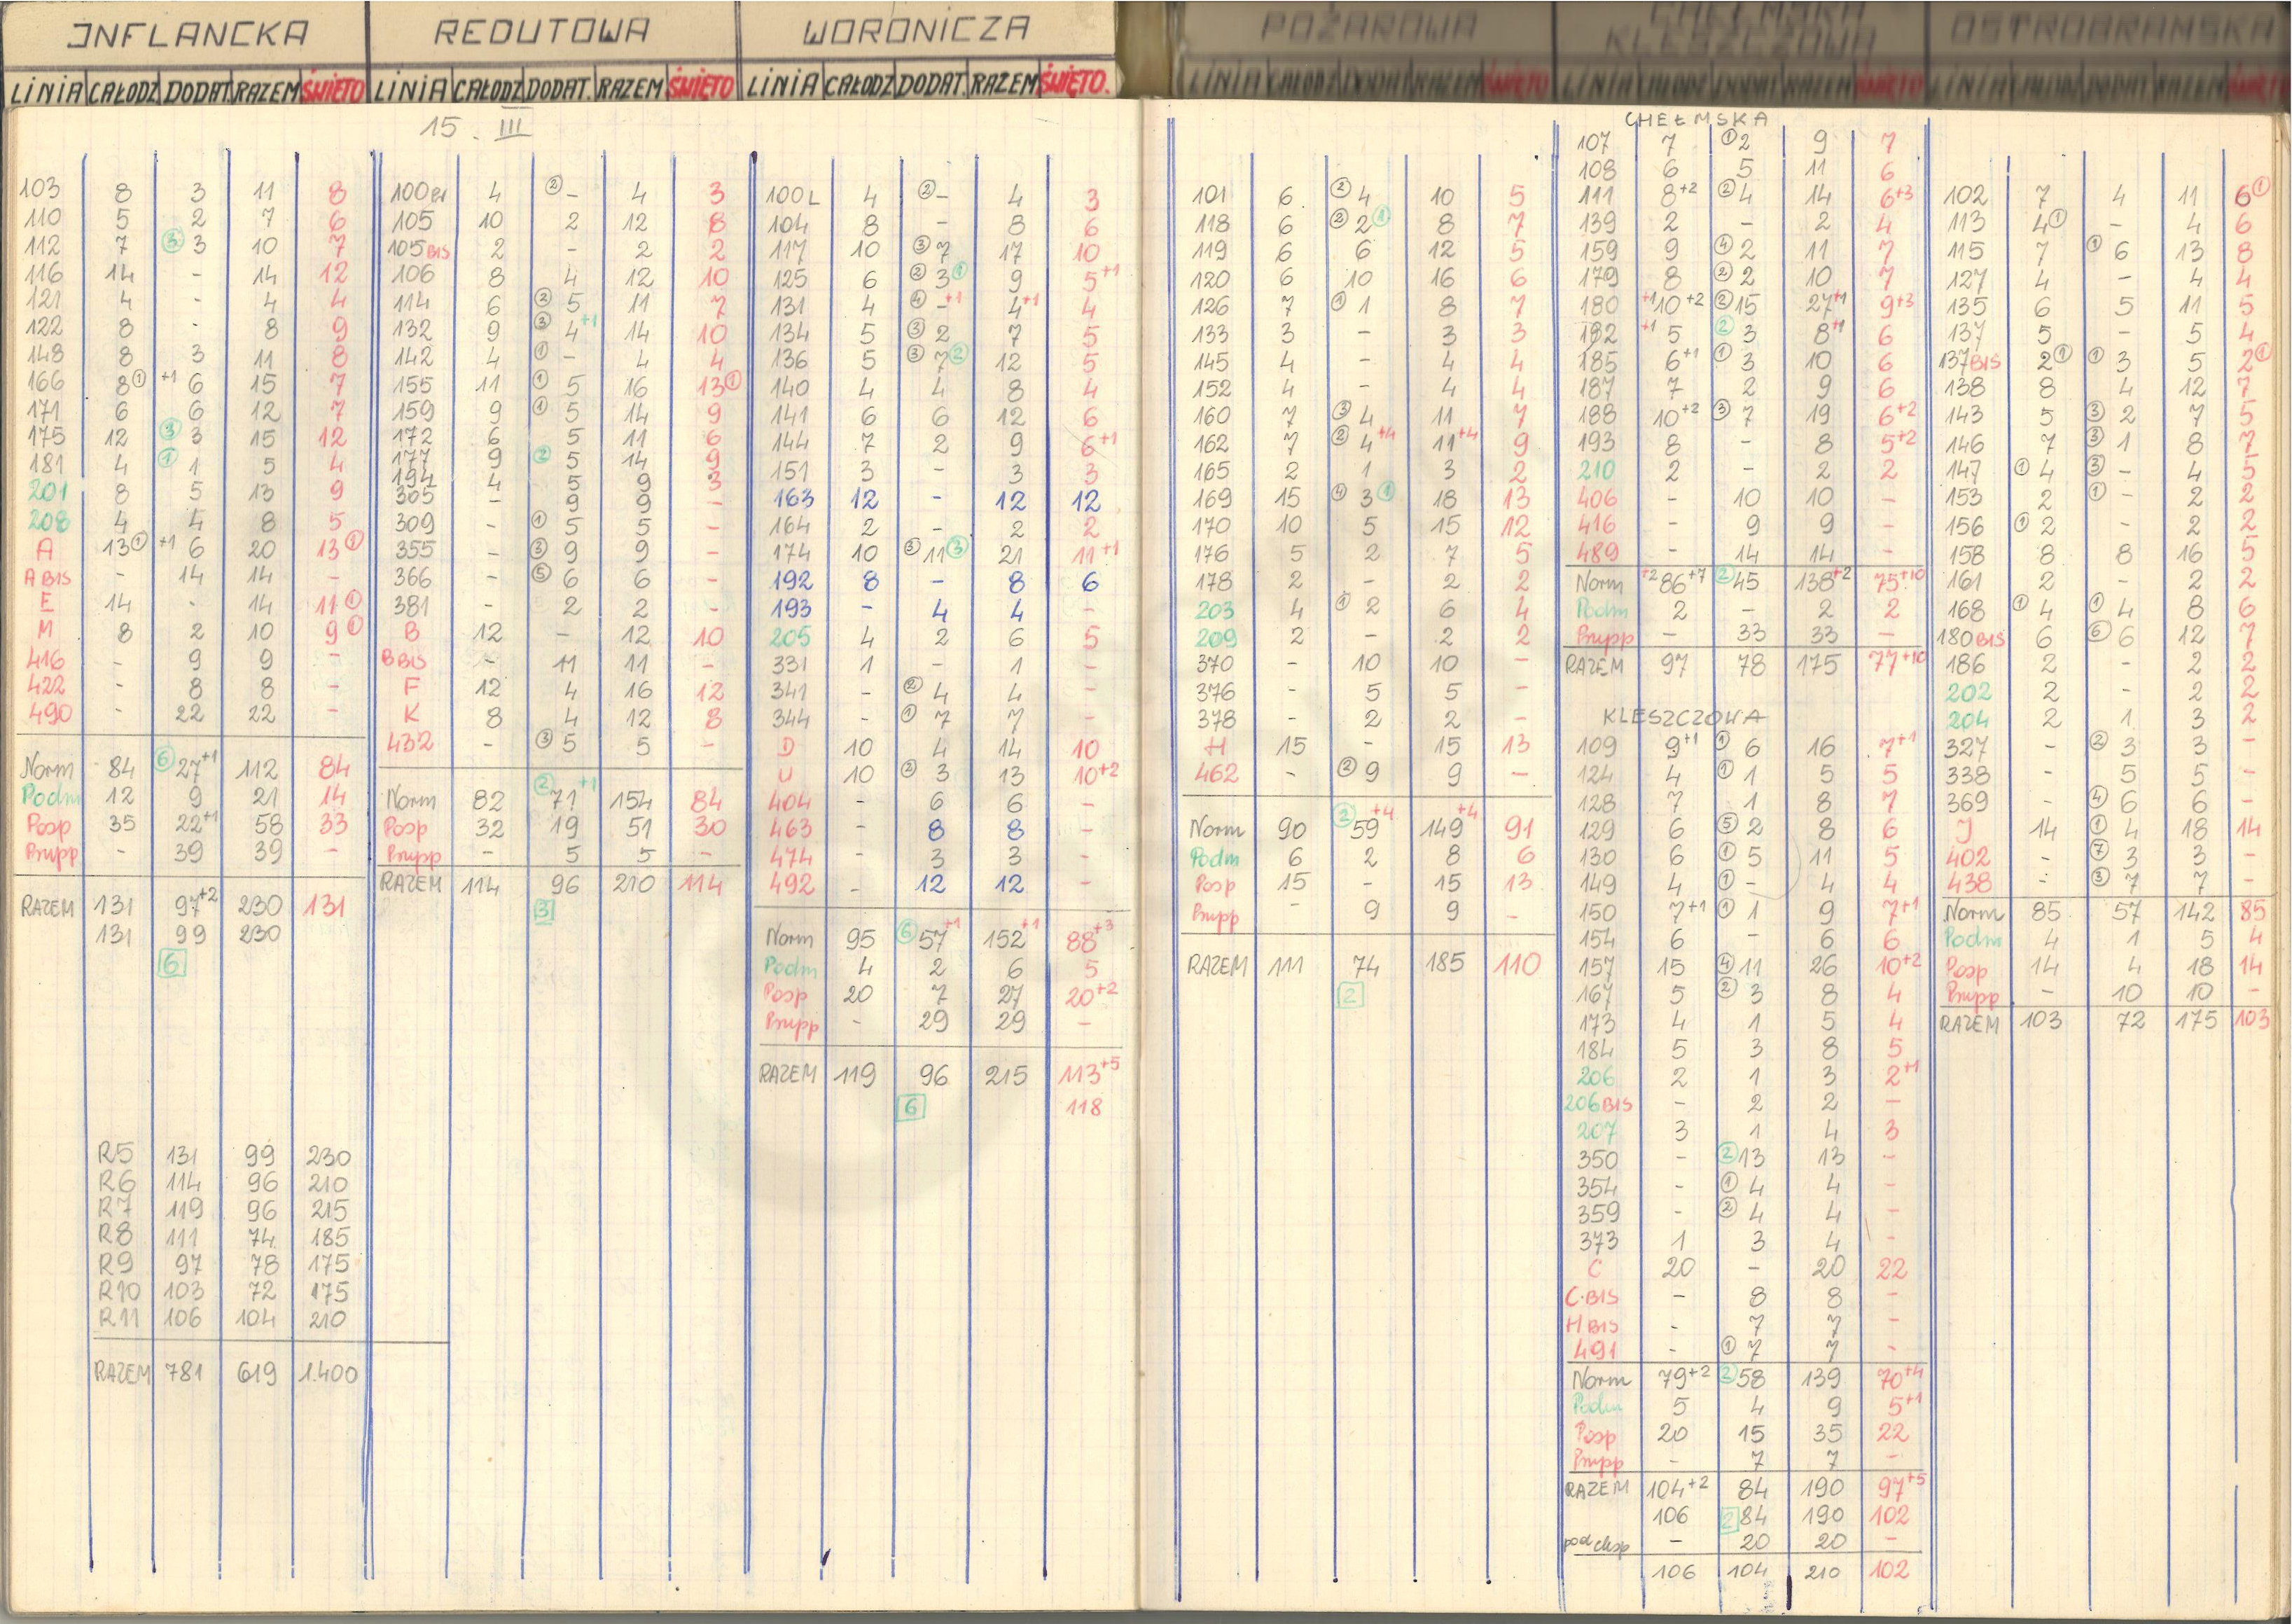 INFLANCKA
LINIA CAŁODZ DODAT RAZEM ŚWIĘTO
15. III
103 8 3 11 8
110 5 2 7 6
112 7 ③ 3 10 7
116 14 - 14 12
121 4 - 4 4
122 8 - 8 9
148 8 3 11 8
166 8① +1 6 15 7
171 6 6 12 7
175 12 ③ 3 15 12
181 4 ① 1 5 4
201 8 5 13 9
208 4 4 8 5
A 13① +1 6 20 13①
A BIS - 14 14 -
E 14 - 14 11①
M 8 2 10 9①
416 - 9 9 -
422 - 8 8 -
490 - 22 22 -
Norm 84 ⑥ 27+1 112 84
Podm 12 9 21 14
Posp 35 22+1 58 33
Prupp - 39 39 -
RAZEM 131 97+2 230 131
131 99 230
6
R5 131 99 230
R6 114 96 210
R7 119 96 215
R8 111 74 185
R9 97 78 175
R10 103 72 175
R11 106 104 210
RAZEM 781 619 1.400
REDUTOWA
LINIA CAŁODZ DODAT. RAZEM ŚWIĘTO
100BI 4 ② - 4 3
105 10 2 12 8
105BIS 2 - 2 2
106 8 4 12 10
114 6 ③ 5 11 7
132 9 ③ 4+1 14 10
142 4 ① - 4 4
155 11 ① 5 16 13①
159 9 ① 5 14 9
172 6 5 11 6
177 9 ② 5 14 9
194 4 5 9 3
305 - 9 9 -
309 - ① 5 5 -
355 - ③ 9 9 -
366 - ⑤ 6 6 -
381 - 2 2 -
B 12 - 12 10
B BIS - 11 11 -
F 12 4 16 12
K 8 4 12 8
432 - ③ 5 5 -
Norm 82 ② 71+1 154 84
Posp 32 19 51 30
Prupp - 5 5 -
RAZEM 114 96 210 114
3
WORONICZA
LINIA CAŁODZ DODAT. RAZEM ŚWIĘTO.
100L 4 ② - 4 3
104 8 - 8 6
117 10 ③ 7 17 10
125 6 ② 3① 9 5+1
131 4 ④ -+1 4+1 4
134 5 ③ 2 7 5
136 5 ③ 7② 12 5
140 4 4 8 4
141 6 6 12 6
144 7 2 9 6+1
151 3 - 3 3
163 12 - 12 12
164 2 - 2 2
174 10 ③ 11③ 21 11+1
192 8 - 8 6
193 - 4 4 -
205 4 2 6 5
331 1 - 1 -
341 - ② 4 4 -
344 - ① 7 7 -
D 10 4 14 10
U 10 ② 3 13 10+2
404 - 6 6 -
463 - 8 8 -
474 - 3 3 -
492 - 12 12 -
Norm 95 ⑥ 57+1 152+1 88+3
Podm 4 2 6 5
Posp 20 7 27 20+2
Prupp - 29 29 -
RAZEM 119 96 215 113+5
6 118
POŻAROWA
LINIA CAŁODZ DODAT RAZEM ŚWIĘTO
101 6 ② 4 10 5
118 6 ② 2① 8 7
119 6 6 12 5
120 6 10 16 6
126 7 ① 1 8 7
133 3 - 3 3
145 4 - 4 4
152 4 - 4 4
160 7 ③ 4 11 7
162 7 ② 4+4 11+4 9
165 2 1 3 2
169 15 ④ 3① 18 13
170 10 5 15 12
176 5 2 7 5
178 2 - 2 2
203 4 ① 2 6 4
209 2 - 2 2
370 - 10 10 -
376 - 5 5 -
378 - 2 2 -
H 15 - 15 13
462 - ② 9 9 -
Norm 90 ② 59+4 149+4 91
Podm 6 2 8 6
Posp 15 - 15 13
Prupp - 9 9 -
RAZEM 111 74 185 110
2
CHEŁMSKA
KLESZCZOWA
LINIA CAŁODZ DODAT RAZEM ŚWIĘTO
CHEŁMSKA
107 7 ① 2 9 7
108 6 5 11 6
111 8+2 ② 4 14 6+3
139 2 - 2 4
159 9 ④ 2 11 7
179 8 ② 2 10 7
180 +1 10+2 ② 15 27+1 9+3
182 +1 5 ② 3 8+1 6
185 6+1 ① 3 10 6
187 7 2 9 6
188 10+2 ③ 7 19 6+2
193 8 - 8 5+2
210 2 - 2 2
406 - 10 10 -
416 - 9 9 -
489 - 14 14 -
Norm +2 86+7 ② 45 138+2 75+10
Podm 2 - 2 2
Prupp - 33 33 -
RAZEM 97 78 175 77+10
KLESZCZOWA
109 9+1 ① 6 16 7+1
124 4 ① 1 5 5
128 7 1 8 7
129 6 ⑤ 2 8 6
130 6 ① 5 11 5
149 4 ① - 4 4
150 7+1 ① 1 9 7+1
154 6 - 6 6
157 15 ④ 11 26 10+2
167 5 ② 3 8 4
173 4 1 5 4
184 5 3 8 5
206 2 1 3 2+1
206BIS - 2 2 -
207 3 1 4 3
350 - ② 13 13 -
354 - ① 4 4 -
359 - ② 4 4 -
373 1 3 4 -
C 20 - 20 22
C.BIS - 8 8 -
H BIS - 7 7 -
491 - ① 7 7 -
Norm 79+2 ② 58 139 70+4
Podm 5 4 9 5+1
Posp 20 15 35 22
Prupp - 7 7 -
RAZEM 104+2 84 190 97+5
106 2 84 190 102
pod chsp - 20 20 -
106 104 210 102
OSTROBRAMSKA
LINIA CAŁODZ DODAT RAZEM ŚWIĘTO
102 7 4 11 6①
113 4① - 4 6
115 7 ① 6 13 8
127 4 - 4 4
135 6 5 11 5
137 5 - 5 4
137BIS 2① ① 3 5 2①
138 8 4 12 7
143 5 ③ 2 7 5
146 7 ③ 1 8 7
147 ① 4 ③ - 4 5
153 2 ① - 2 2
156 ① 2 - 2 2
158 8 8 16 5
161 2 - 2 2
168 ① 4 ① 4 8 6
180BIS 6 ⑥ 6 12 7
186 2 - 2 2
202 2 - 2 2
204 2 1 3 2
327 - ② 3 3 -
338 - 5 5 -
369 - ④ 6 6 -
J 14 ① 4 18 14
402 - ⑦ 3 3 -
438 - ③ 7 7 -
Norm 85 57 142 85
Podm 4 1 5 4
Posp 14 4 18 14
Prupp - 10 10 -
RAZEM 103 72 175 103